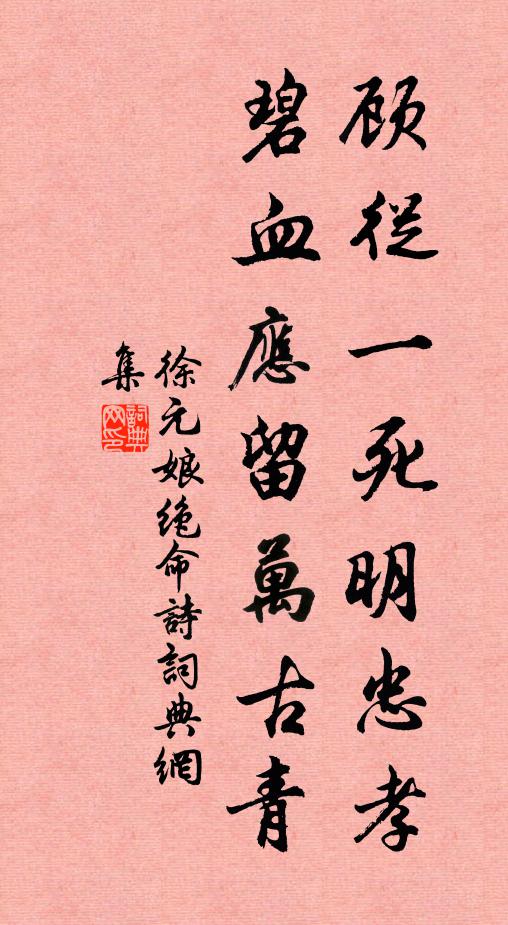 顾從一死明忠孝
碧血應留萬古青
徐元娘绝命詩詞典網
集
詞典
网印